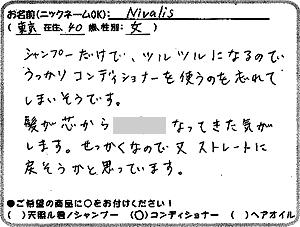 お名前(ニックネームOK): Nivalis
(東京 在住, 40 歳, 性別: 女 )
シャンプーだけで、ツルツルになるので
うっかりコンディショナーを使うのを忘れて
しまいそうです。
髪が芯から なってきた気が
します。せっかくなので又ストレートに
戻そうかと思っています。
●ご希望の商品に○をお付けください!
( )天照ル君ノシャンプー (○)コンディショナー ( )ヘアオイル